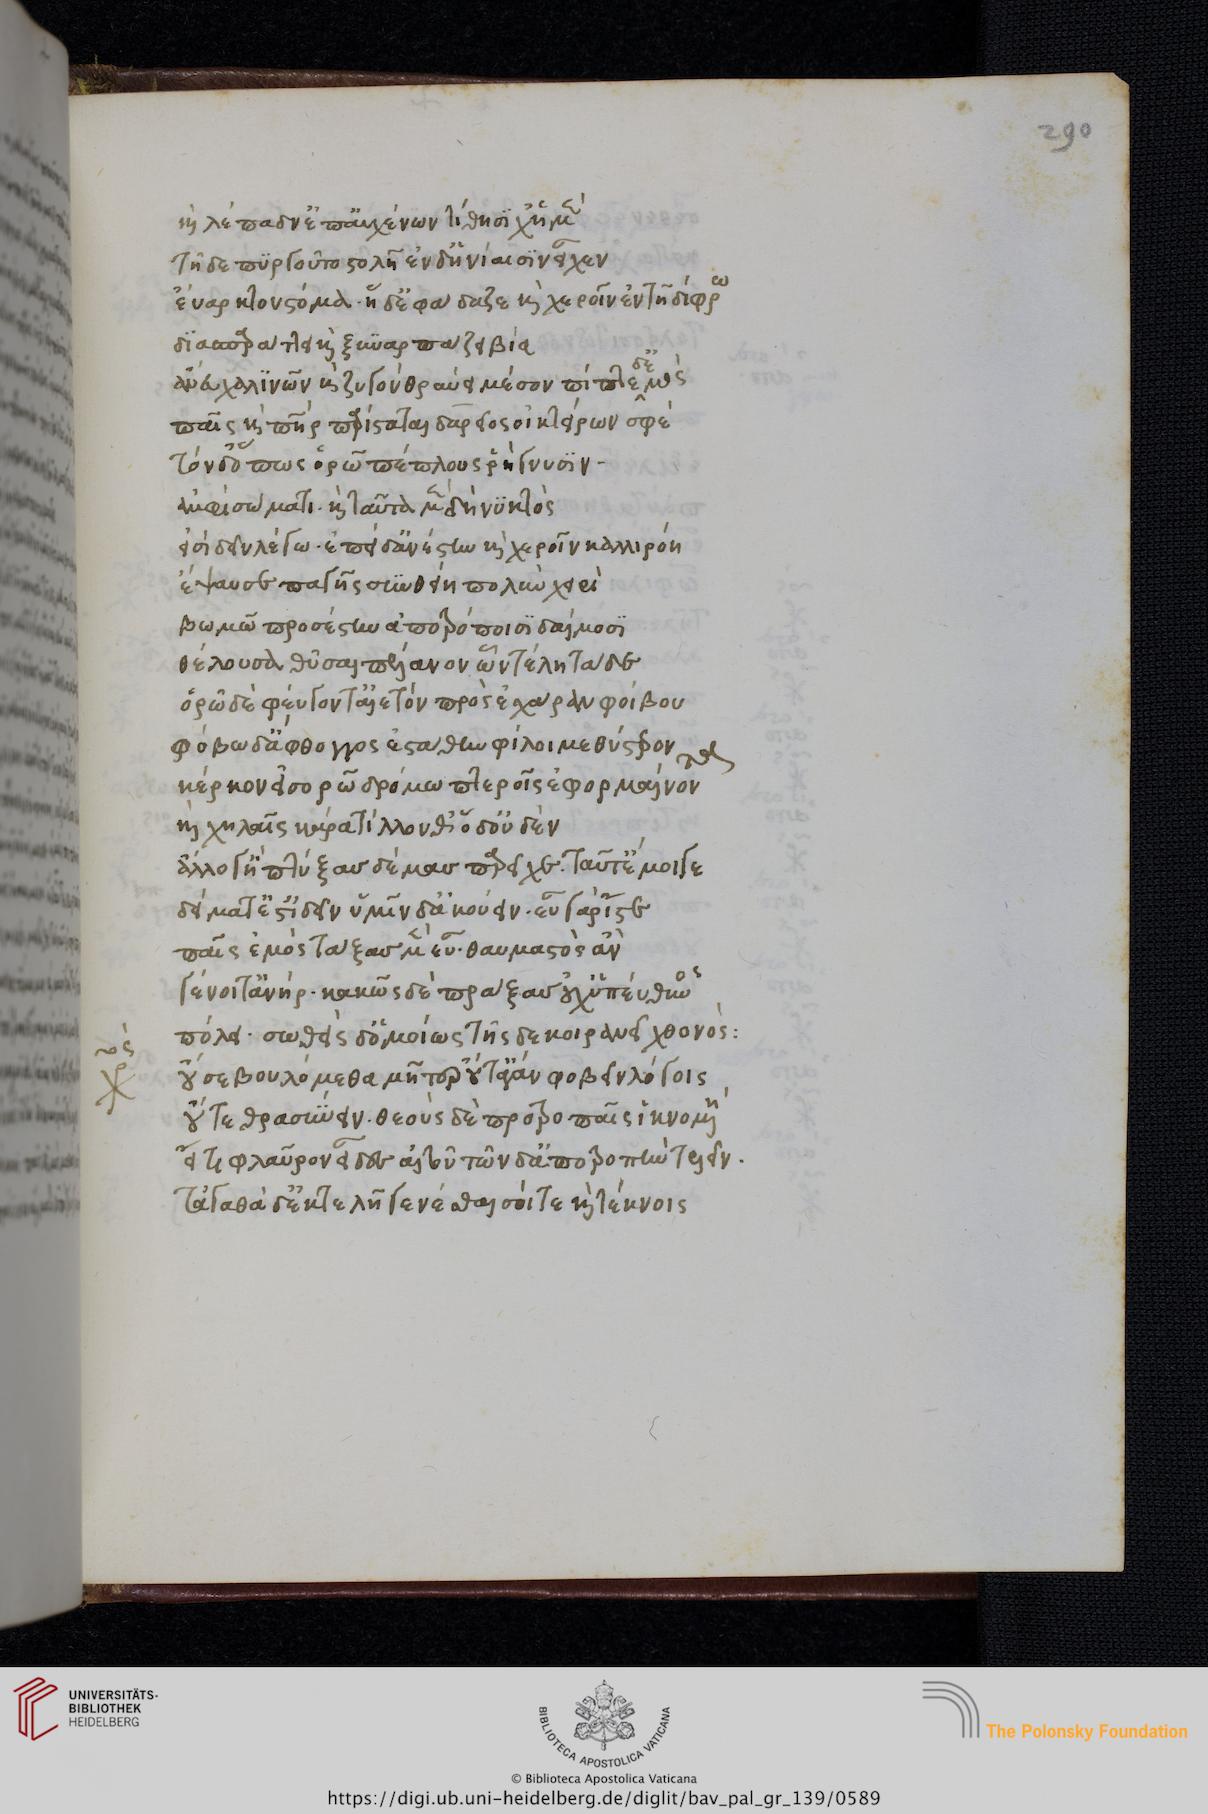 290
κ λέπαδν' ἐπ' αὐχένων τίθησι χ' ἡ μὲν
τῆδε πυργοῦτο στολῆ ἐν δ' ἡνίαισιν εἶχεν
εὔαρκτον στόμα. ἡ δ' ἐσφάδαζε κ χεροῖν ἐντη δίφρω
διασπαράττει κ ξυναρπάζει βία
ἄνευ χαλινῶν κ ζυγὸν θραύει μέσον πίπτει δ' ἐμὸς
παῖς κ πηρ παρίσταται δαρεῖος οἰκτείρων σφέ
τὸν δ' ὅπως ὁρᾶ πέπλους ῥήγνυσιν
ἀμφὶ σώματι. κ ταῦτα μὲν δὴ νυκτὸς
εἰσιδεῖν λέγω. ἐπεὶ δ' ἀνέστην κ χεροῖν καλλιρόη
ἔψαυσα παγῆς σὺν θυηπόλω χερὶ
βωμῶ προσέστην ἀποτρόποισι δαίμοσι
θέλουσα θῦσαι πέλανον ὧν τέλη τάδε
ὁρῶ δὲ φεύγοντ' αἰετὸν πρὸς ἐσχάραν φοίβου
φόβω δ' ἄφθογγος ἐστάθην φίλοι μεθύστερον δὲ
κέρκον εἰσορῶ δρόμω πτεροῖς ἐφορμαίνοντα
κ χηλαῖς κάρα τίλλονθ' ὁ δ' οὐδὲν
ἄλλο γ' ἢ πτύξας δέμας παρεῖχε. ταῦτ' ἔμοιγε
δείματ' ἔστ' ἰδεῖν ὑμῖν δ' ἀκούειν. εὖ γὰρ ἴστε
παῖς ἐμὸς πράξας μὲν εὖ. θαυμαστὸς ἂν
γένοιτ' ἀνήρ. κακῶς δὲ πράξας οὐχ ὑπεύθυνος
πόλει. σωθεὶς δ' ὁμοίως τῆς δε κοιρανεῖ χθονός:
χορός
οὔ σε βουλόμεθα μῆτερ οὔτ' ἄγαν φοβεῖν λόγοις
οὔτε θρασύνειν. θεοὺς δὲ προστροπαῖς ἱκνουμένη
εἴ τι φλαῦρον εἶδες αἰτοῦ τῶνδ' ἀποτροπὴν τελεῖν.
τἀγαθὰ δ' ἐκτελῆ γενέσθαι σοί τε κ τέκνοις
UNIVERSITÄTS-
BIBLIOTHEK
HEIDELBERG
BIBLIOTECA APOSTOLICA VATICANA
The Polonsky Foundation
© Biblioteca Apostolica Vaticana
https://digi.ub.uni-heidelberg.de/diglit/bav_pal_gr_139/0589